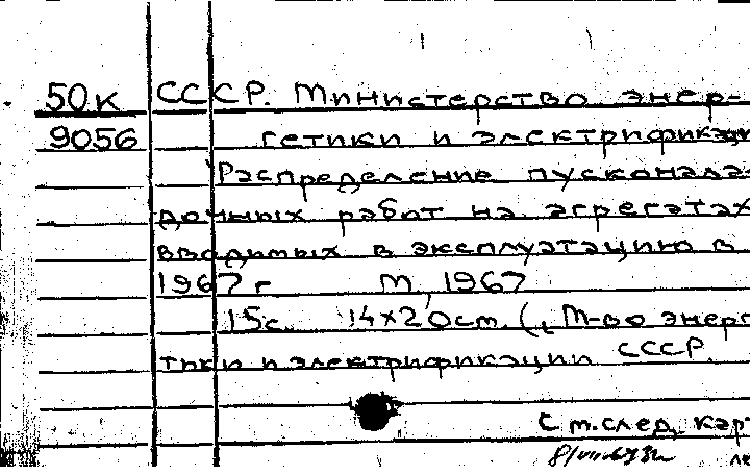 50к СССР. Министерство энер-
9056 гетики и электрификации
Распределение пусконала-
дочных работ на агрегатах
вводимых в эксплуатацию в
1967 г М, 1967
15с. 14х20см. (, М-во энерг
тики и электрификации СССР.
См.след. кар